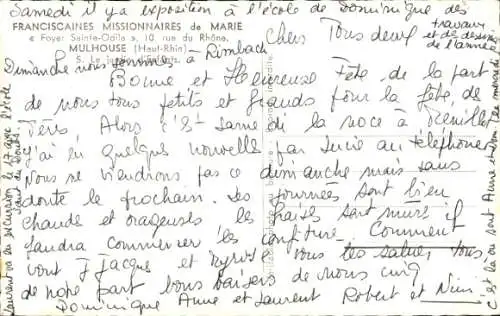 Samedi il y a exposition à l'école de Dominique des
travaux
et de dessins
de l'année
FRANCISCAINES MISSIONNAIRES de MARIE
« Foyer Sainte-Odile », 10 rue du Rhône
MULHOUSE (Haut-Rhin)
5. Le jardin d'enfants
Dimanche nous sommes à Rimbach
Chers Tous deux
Bonne et Heureuse Fête de la part
de nous tous petits et grands pour la fête des
Pères. Alors c'est samedi la noce à
j'ai eu quelques nouvelles par Lucie au téléphone
Nous ne viendrons pas ce dimanche mais sans
doute le prochain. Les journées sont bien
chaudes et orageuses les fraises sont mûres il
faudra commencer les confitures. Comment
vont Jacques et vous les saluez tous
de notre part bons baisers de nous cinq
Dominique Anne et Laurent Robert et Nini
Laurent va en excursion le 17 avec l'école
saut du Doubs
c'est là où sont Anne